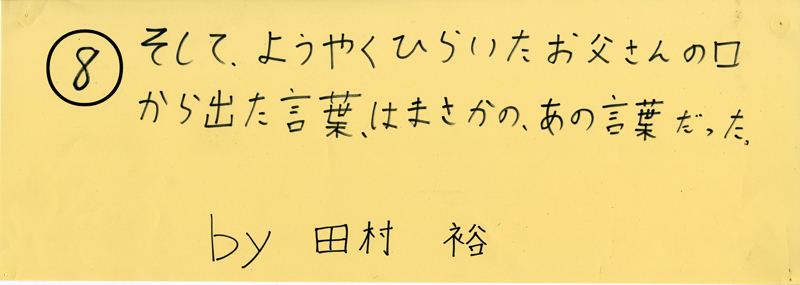 ⑧ そして、ようやくひらいたお父さんの口
から出た言葉、はまさかの、あの言葉だった。
by 田村 裕